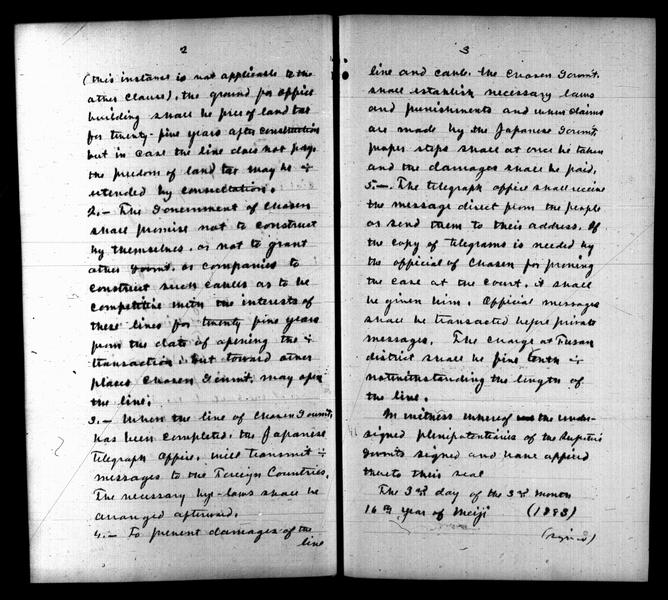 2
(this instance is not applicable to the
other clause), the ground for office
building shall be free of land tax
for twenty-five years after construction
but in case the line does not pay,
the freedom of land tax may be
extended by consultation.
2.- The Government of Chosen
shall promise not to construct
by themselves, or not to grant
other Govmt. or companies to
construct such cables as to be
competitive with the interests of
these lines for twenty five years
from the date of opening the
transaction; but toward other
places Chosen Govmt. may open
the line.
3.- When the line of Chosen Govmt.
has been completed, the Japanese
Telegraph Office, will transmit
messages to the Foreign Countries.
The necessary bye-laws shall be
arranged afterward.
4.- To prevent damages of the
line
3
line and cable, the Chosen Govmt.
shall establish necessary laws
and punishments and when claims
are made by the Japanese Govmt.
proper steps shall at once be taken
and the damages shall be paid.
5.- The telegraph office shall receive
the message direct from the people
or send them to their address. If
the copy of telegrams is needed by
the official of Chosen for proving
the case at the court, it shall
be given him. Official messages
shall be transacted before private
messages. The charge at Fusan
district shall be five tenth
notwithstanding the length of
the line.
In witness whereof the under-
signed plenipotentiaries of the respective
Govmts signed and have affixed
thereto their seal
The 3rd day of the 3rd month
16th year of Meiji (1883)
(signed)